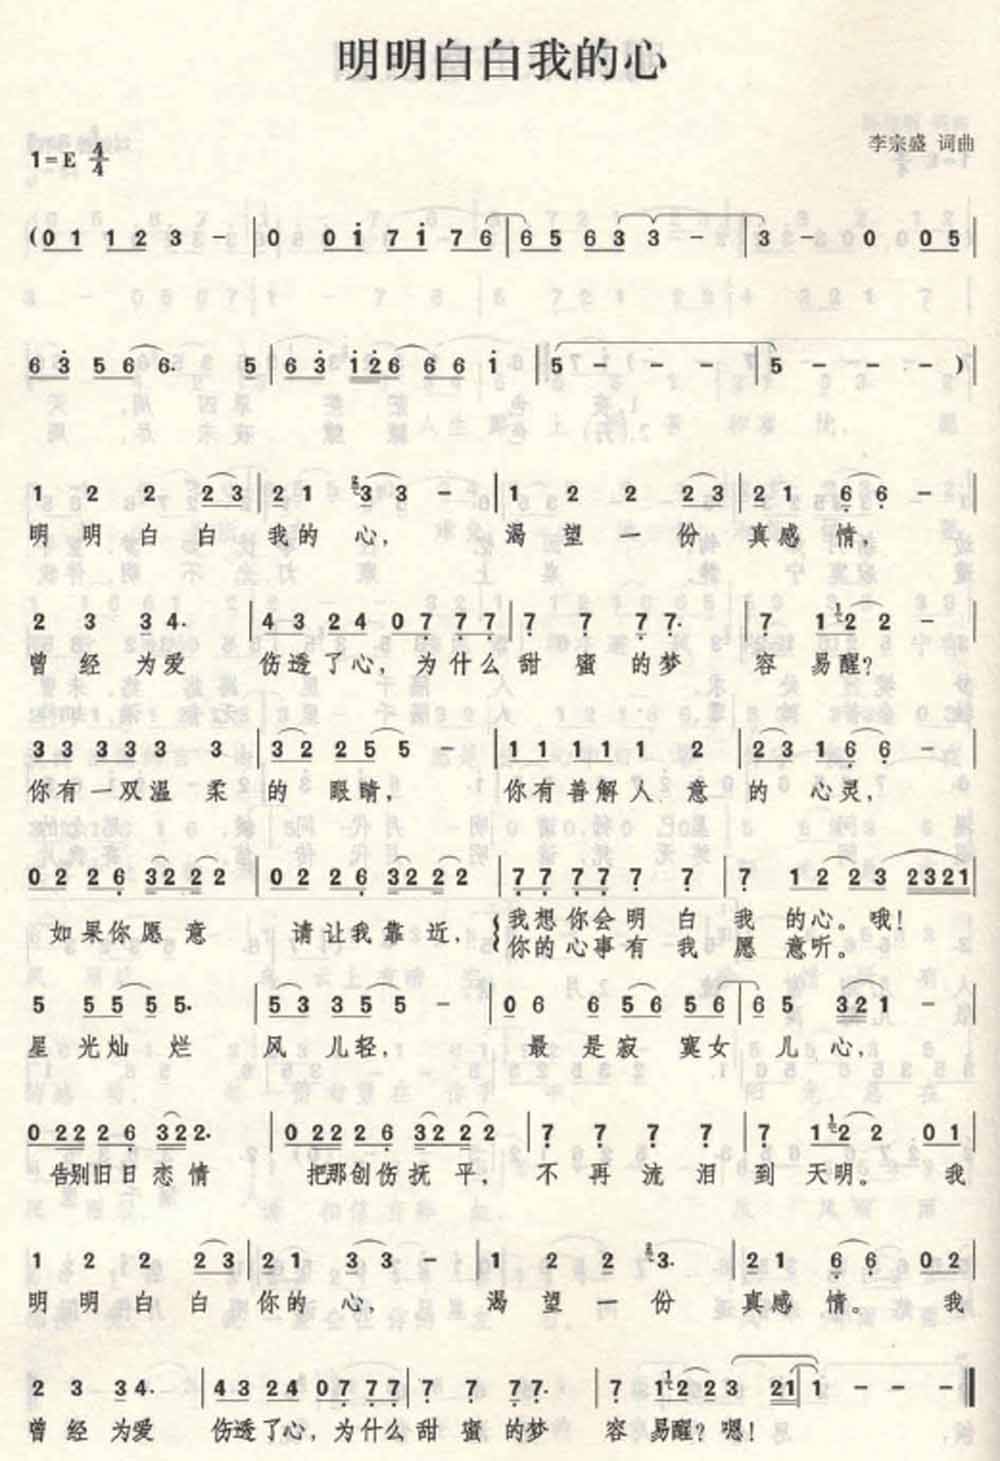 明明白白我的心
李宗盛 词曲
1=E 4/4
(0 1 1 2 3 - | 0 0 1 7 1 7 6 | 6 5 6 3 3 - | 3 - 0 0 5 |
6 3 5 6 6. 5 | 6 3 1 2 6 6 6 1 | 5 - - - | 5 - - - )
1 2 2 2 3 | 2 1 3 3 - | 1 2 2 2 3 | 2 1 6 6 - |
明 明 白 白 我 的 心， 渴 望 一 份 真 感 情，
2 3 3 4. | 4 3 2 4 0 7 7 7 | 7 7 7 7. | 7 1 2 2 - |
曾 经 为爱 伤透了心，为什么甜 蜜 的梦 容 易醒？
3 3 3 3 3 3 3 | 3 2 2 5 5 - | 1 1 1 1 1 1 2 | 2 3 1 6 6 - |
你有一双温 柔 的 眼睛， 你有善解人 意 的 心灵，
0 2 2 6 3 2 2 2 | 0 2 2 6 3 2 2 2 | 7 7 7 7 7 7 7 | 7 1 2 2 3 2 3 2 1 |
如果你愿意 请让我靠近， 我想你会明 白 我 的心。哦！
你的心事有 我 愿 意听。
5 5 5 5 5. | 5 3 3 5 5 - | 0 6 6 5 6 5 6 | 6 5 3 2 1 - |
星 光灿 烂 风 儿轻， 最 是寂 寞女 儿 心，
0 2 2 2 6 3 2 2. | 0 2 2 2 6 3 2 2 2 | 7 7 7 7 | 7 1 2 2 0 1 |
告别旧日恋情 把那创伤抚平， 不 再 流 泪 到 天明。 我
1 2 2 2 3 | 2 1 3 3 - | 1 2 2 3. | 2 1 6 6 0 2 |
明 明 白 白 你的 心， 渴 望 一 份 真感 情。 我
2 3 3 4. | 4 3 2 4 0 7 7 7 | 7 7 7 7. | 7 1 2 2 3 2 1 | 1 - - - ‖
曾 经 为爱 伤透了心，为什么甜 蜜 的梦 容 易醒？嗯！